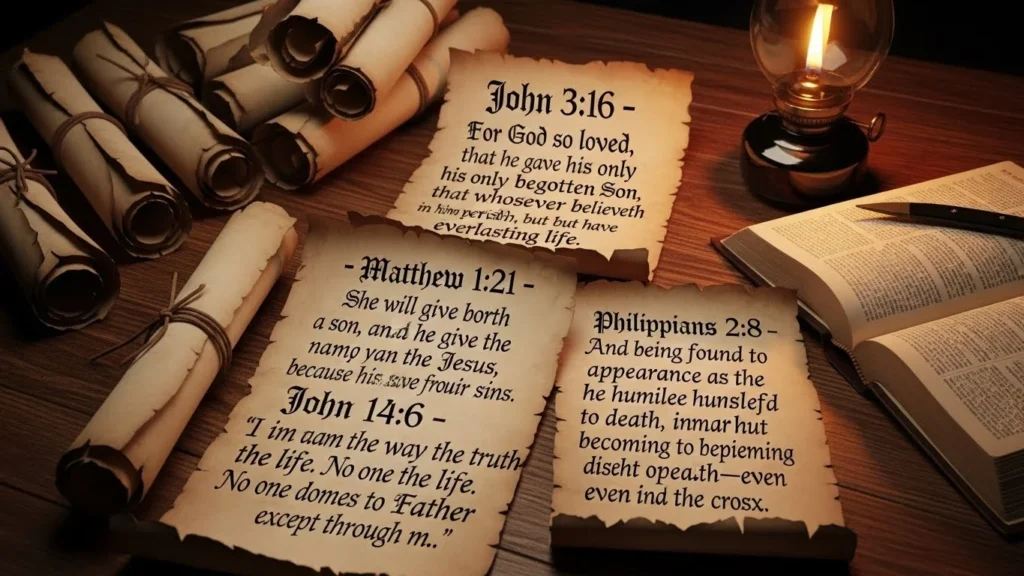 John 3:16 -
For God so loved,
that he gave his only
his only begotten Son,
that whosever believeth
in him perish, but but have
everlasting life.
- Matthew 1:21 -
She will give borth
a son, and he give the
namp yan the Jesus,
because his save frouir sins.
John 14:6 -
"I im aam the way the truth,
the life. No one the life.
No one domes to Father
except through m.."
Philippians 2:8 -
And being found to
appearance as the
he humilee hunslefd
to death, inmar hut
becoming to bepieming
diseht opea.th—even
even ind the crosx.